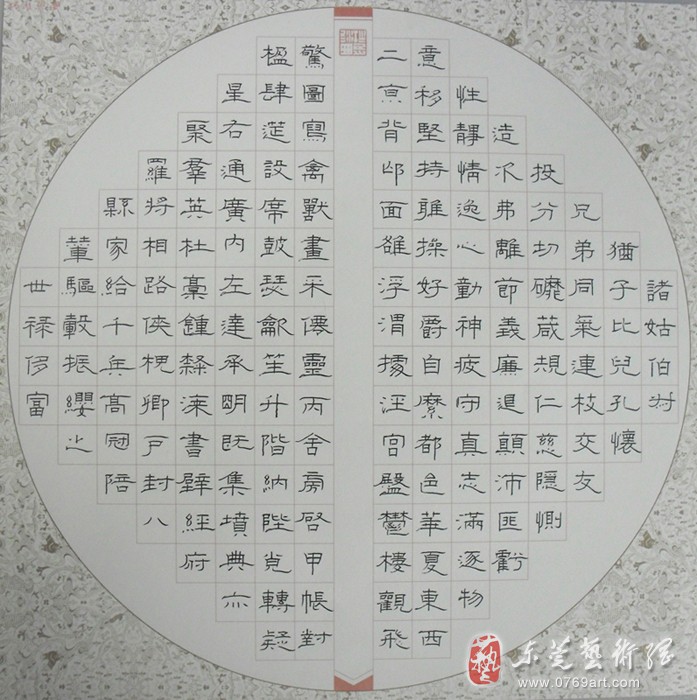 諸姑伯叔
猶子比兒孔懷
兄弟同氣連枝交友
投分切礳葴規仁慈隱惻
造次弗離節義廉退顛沛匪虧
性靜情逸心動神疲守真志滿逐物
意移堅持雅操好爵自縻都邑華夏東西
二京背邙面雒浮渭據涇宮盤鬱樓觀飛
驚圖寫禽獸畫采僊靈丙舍房啓甲帳對
楹肆筵設席鼓瑟龡笙升階納陛弁轉疑
星右通廣內左達承明既集墳典亦
聚羣英杜稾鍾隸漆書壁經府
羅將相路俠槐卿戶封八
縣家給千兵高冠陪
輦驅轂振纓之
世祿侈富
藝 东莞藝術网
www.0769art.com